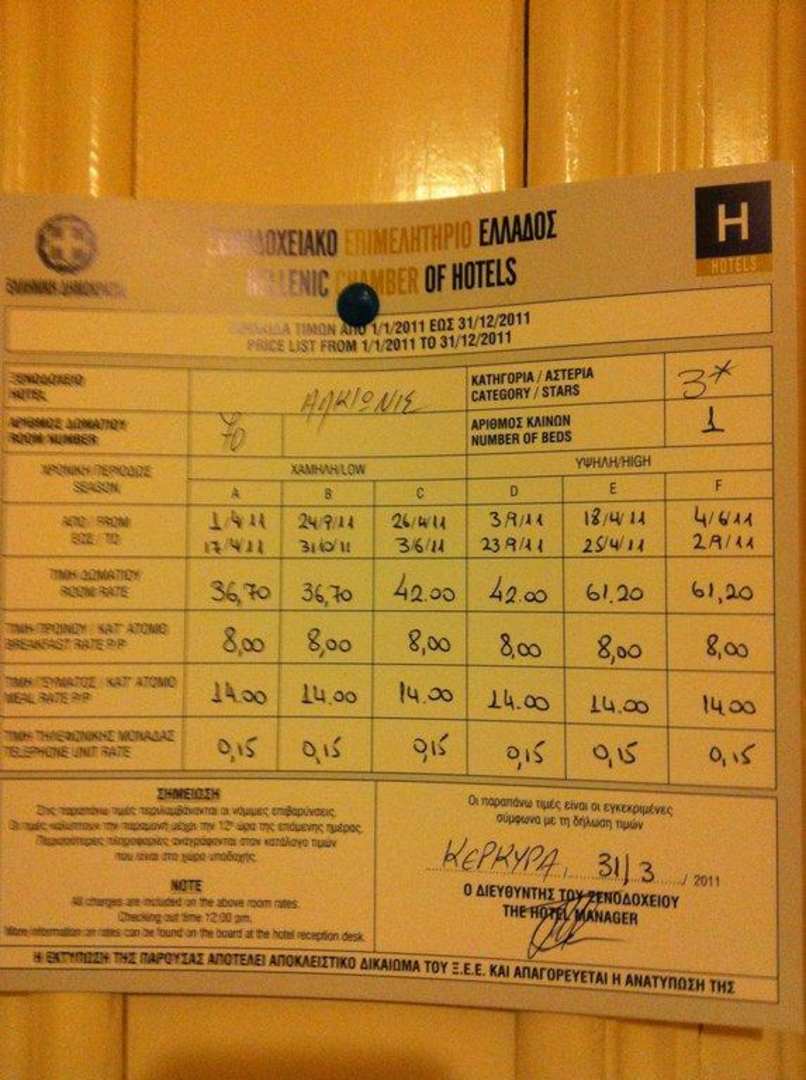 ΞΕΝΟΔΟΧΕΙΑΚΟ ΕΠΙΜΕΛΗΤΗΡΙΟ ΕΛΛΑΔΟΣ
HELLENIC CHAMBER OF HOTELS
H
HOTELS
ΕΛΛΗΝΙΚΗ ΔΗΜΟΚΡΑΤΙΑ
ΤΙΜΩΝ ΑΠΟ 1/1/2011 ΕΩΣ 31/12/2011
PRICE LIST FROM 1/1/2011 TO 31/12/2011
ΞΕΝΟΔΟΧΕΙΟ
HOTEL
ΑΛΚΙΩΝΙΣ
ΚΑΤΗΓΟΡΙΑ / ΑΣΤΕΡΙΑ
CATEGORY / STARS
3*
ΑΡΙΘΜΟΣ ΔΩΜΑΤΙΟΥ
ROOM NUMBER
ΑΡΙΘΜΟΣ ΚΛΙΝΩΝ
NUMBER OF BEDS
1
ΧΡΟΝΙΚΗ ΠΕΡΙΟΔΟΣ
SEASON
ΧΑΜΗΛΗ/LOW
ΥΨΗΛΗ/HIGH
A B C D E F
ΑΠΟ / FROM 1/4/11 24/9/11 26/4/11 3/9/11 18/4/11 4/6/11
ΕΩΣ / TO 17/4/11 31/10/11 3/6/11 23/9/11 25/4/11 2/9/11
ΤΙΜΗ ΔΩΜΑΤΙΟΥ
ROOM RATE
36,70 36,70 42.00 42.00 61.20 61,20
ΤΙΜΗ ΠΡΩΙΝΟΥ / ΚΑΤ' ΑΤΟΜΟ
BREAKFAST RATE P/P
8,00 8,00 8,00 8,00 8,00 8,00
ΤΙΜΗ ΓΕΥΜΑΤΟΣ / ΚΑΤ' ΑΤΟΜΟ
MEAL RATE P/P
14.00 14.00 14.00 14.00 14.00 14.00
ΤΙΜΗ ΤΗΛΕΦΩΝΙΚΗΣ ΜΟΝΑΔΑΣ
TELEPHONE UNIT RATE
0,15 0,15 0,15 0,15 0,15 0,15
ΣΗΜΕΙΩΣΗ
Στις παραπάνω τιμές περιλαμβάνονται οι νόμιμες επιβαρύνσεις.
Οι τιμές καλύπτουν την παραμονή μέχρι την 12η ώρα της επόμενης ημέρας.
Περισσότερες πληροφορίες αναγράφονται στον κατάλογο τιμών
που είναι στο χώρο υποδοχής.
NOTE
All charges are included on the above room rates.
Checking out time 12:00 pm.
More information on rates can be found on the board at the hotel reception desk.
Οι παραπάνω τιμές είναι οι εγκεκριμένες
σύμφωνα με τη δήλωση τιμών
ΚΕΡΚΥΡΑ, 31/3 / 2011
Ο ΔΙΕΥΘΥΝΤΗΣ ΤΟΥ ΞΕΝΟΔΟΧΕΙΟΥ
THE HOTEL MANAGER
Η ΕΚΤΥΠΩΣΗ ΤΗΣ ΠΑΡΟΥΣΑΣ ΑΠΟΤΕΛΕΙ ΑΠΟΚΛΕΙΣΤΙΚΟ ΔΙΚΑΙΩΜΑ ΤΟΥ Ξ.Ε.Ε. ΚΑΙ ΑΠΑΓΟΡΕΥΕΤΑΙ Η ΑΝΑΤΥΠΩΣΗ ΤΗΣ